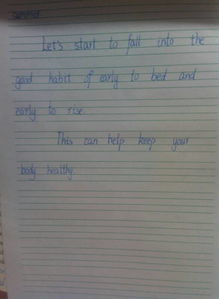 Let's start to fall into the
good habit of early to bed and
early to rise.
This can help keep your
body healthy.